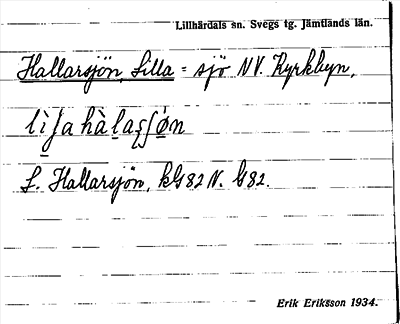 Lillhärdals sn. Svegs tg. Jämtlands län.
Hallarsjön, Lilla = sjö NV. Kyrkbyn,
lìʃa hàlaʂʃön
L. Hallarsjön, kG82 N. G82.
Erik Eriksson 1934.